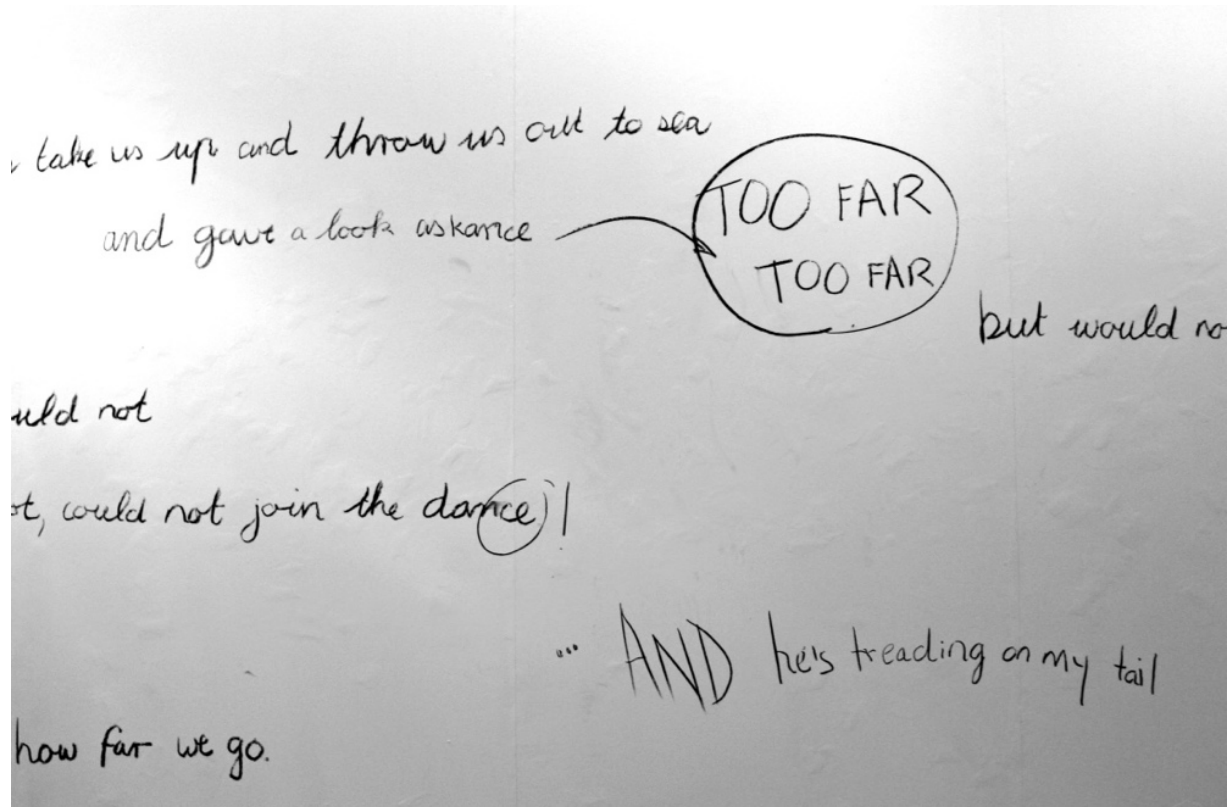 take us up and throw us out to sea
and gave a look askance
TOO FAR
TOO FAR
but would no
uld not
ot, could not join the dance!
... AND he's treading on my tail
how far we go.